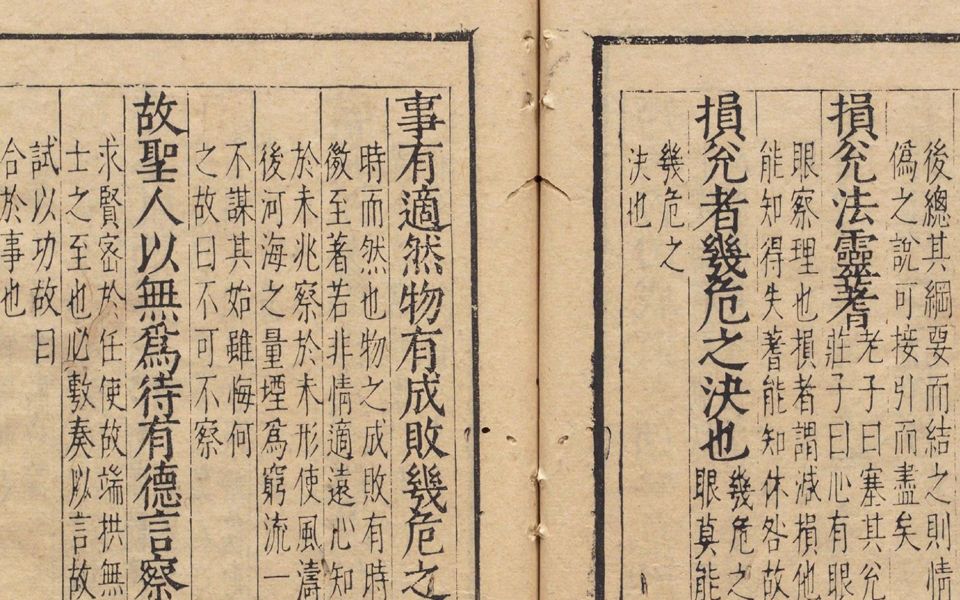 後總其綱要而結之則情
偽之說可接引而盡矣
損兊法靈蓍
老子曰塞其兊
莊子曰心有眼
眼察理也損者謂減損他
能知得失蓍能知休咎故
損兊者幾危之決也
幾危之
眼莫能
幾危之
決也
事有適然物有成敗幾危之
時而然也物之成敗有時
微至著若非情適遠心知
於未兆察於未形使風濤
後河海之量堙爲窮流一
不謀其始雖悔何
之故曰不可不察
故聖人以無爲待有德言察
求賢宻於任使故端拱無
士之至也必敷奏以言故
試以功故曰
合於事也